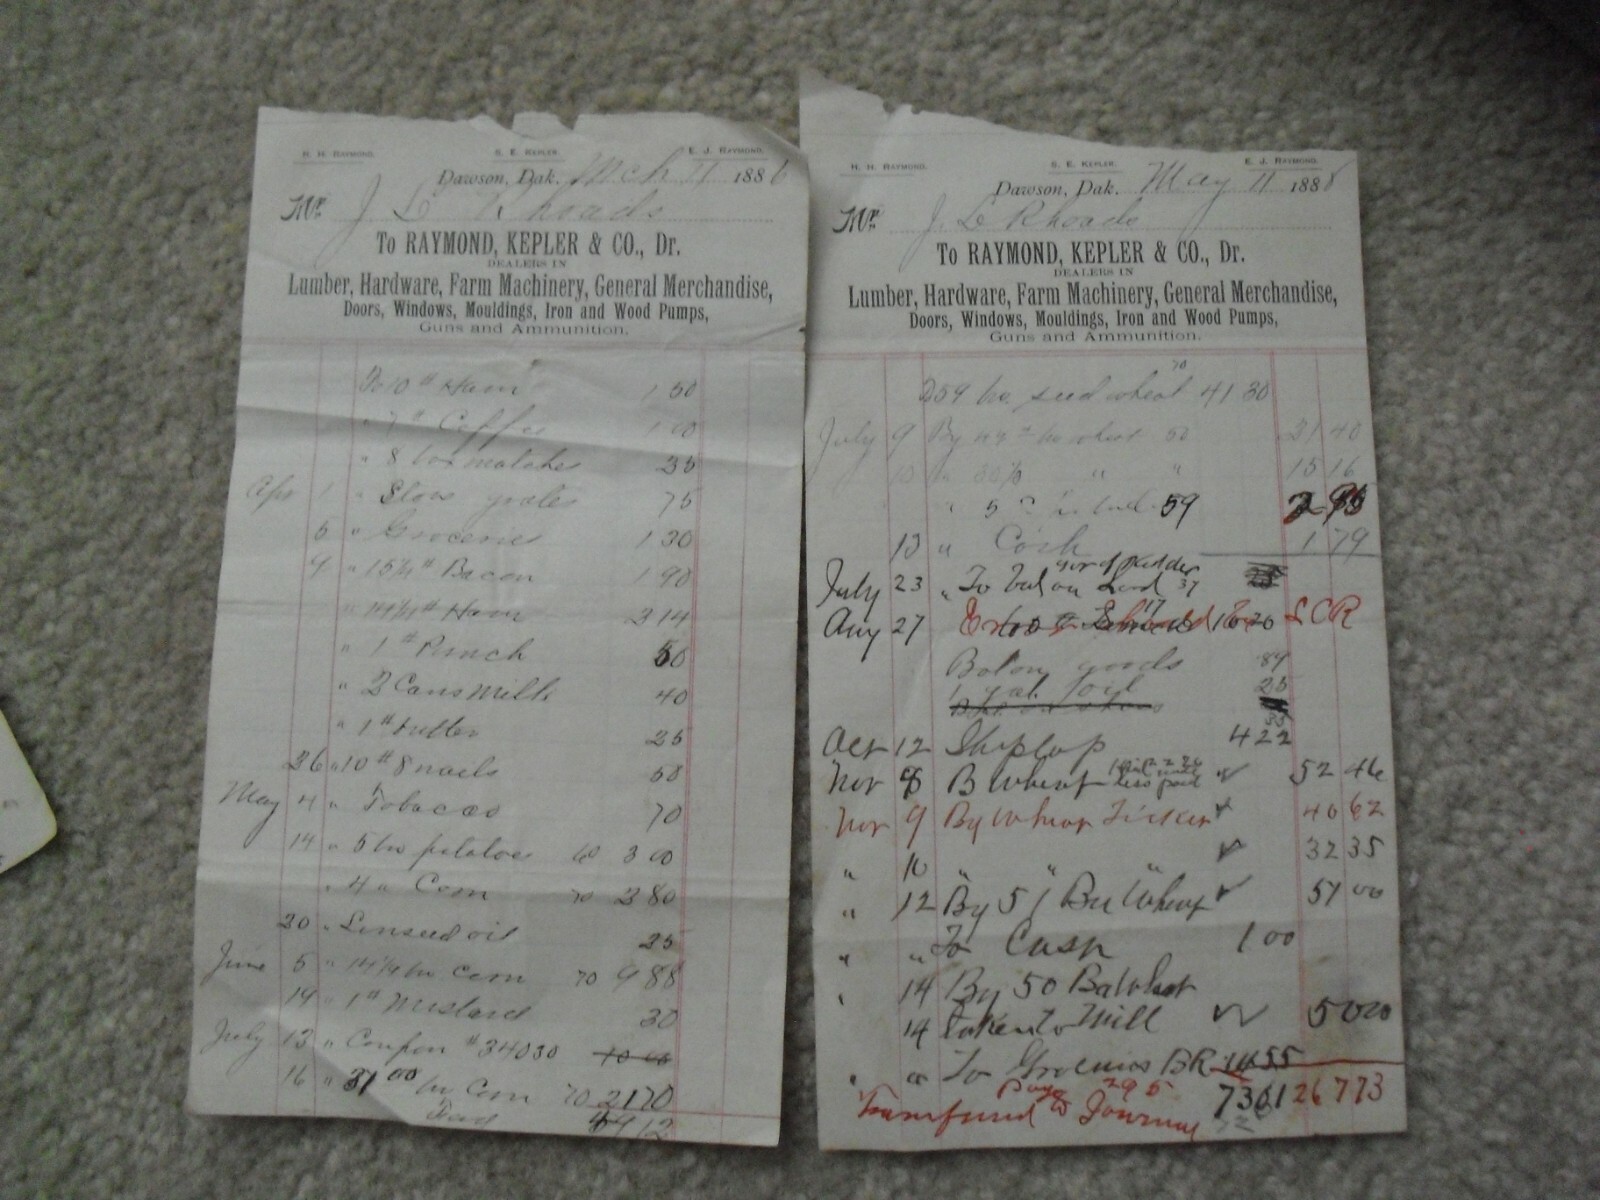 H. H. RAYMOND. S. E. KEPLER. E. J. RAYMOND.
Dawson, Dak. Mch 11 1886
Mr. J L Rhoads
To RAYMOND, KEPLER & CO., Dr.
DEALERS IN
Lumber, Hardware, Farm Machinery, General Merchandise,
Doors, Windows, Mouldings, Iron and Wood Pumps,
Guns and Ammunition.
To 10 # Ham 1 50
" 7 # Coffee 1 00
" 8 box matches 35
Apr 1 " Stove grates 75
5 " Groceries 1 30
9 " # Bacon 1 90
" # Ham 2 14
" 1 # Punch 50
" 2 Cans Milk 40
" 1 # butter 25
26 " 10 # 8 nails 50
May 4 " Tobacco 70
14 " 5 bu potatoes 60 3 00
" 4 " Corn 70 2 80
30 " Linseed oil 25
June 5 " 14 1/4 bu corn 70 9 88
19 " 1 # Mustard 30
July 13 " Coupon # 34030 10 00
16 " 31 00 bu Corn 70 21 70
H. H. RAYMOND. S. E. KEPLER. E. J. RAYMOND.
Dawson, Dak. May 11 1888
Mr. J. L Rhoads
To RAYMOND, KEPLER & CO., Dr.
DEALERS IN
Lumber, Hardware, Farm Machinery, General Merchandise,
Doors, Windows, Mouldings, Iron and Wood Pumps,
Guns and Ammunition.
59 bu. seed wheat 70 41 30
July 9 By bu wheat 50 21 40
" " 15 16
" 5 59 2 95
13 " Cash 1 79
July 23 " To bal on 37
Aug 27 L C R
Bolony goods 84
1 gal oil 25
Oct 12 Shiplap 4 22
Nov 8 B Wheat 52 46
Nov 9 By Wheat Ticket 40 62
" 10 " " " 32 35
" 12 By 51 Bu Wheat 51 00
" " To Cash 1 00
" 14 By 50 Bu Wheat
14 taken to Mill 50 00
" " To Groceries BR 14 55
Transferred Page 295 to Journal 73 61 267 73